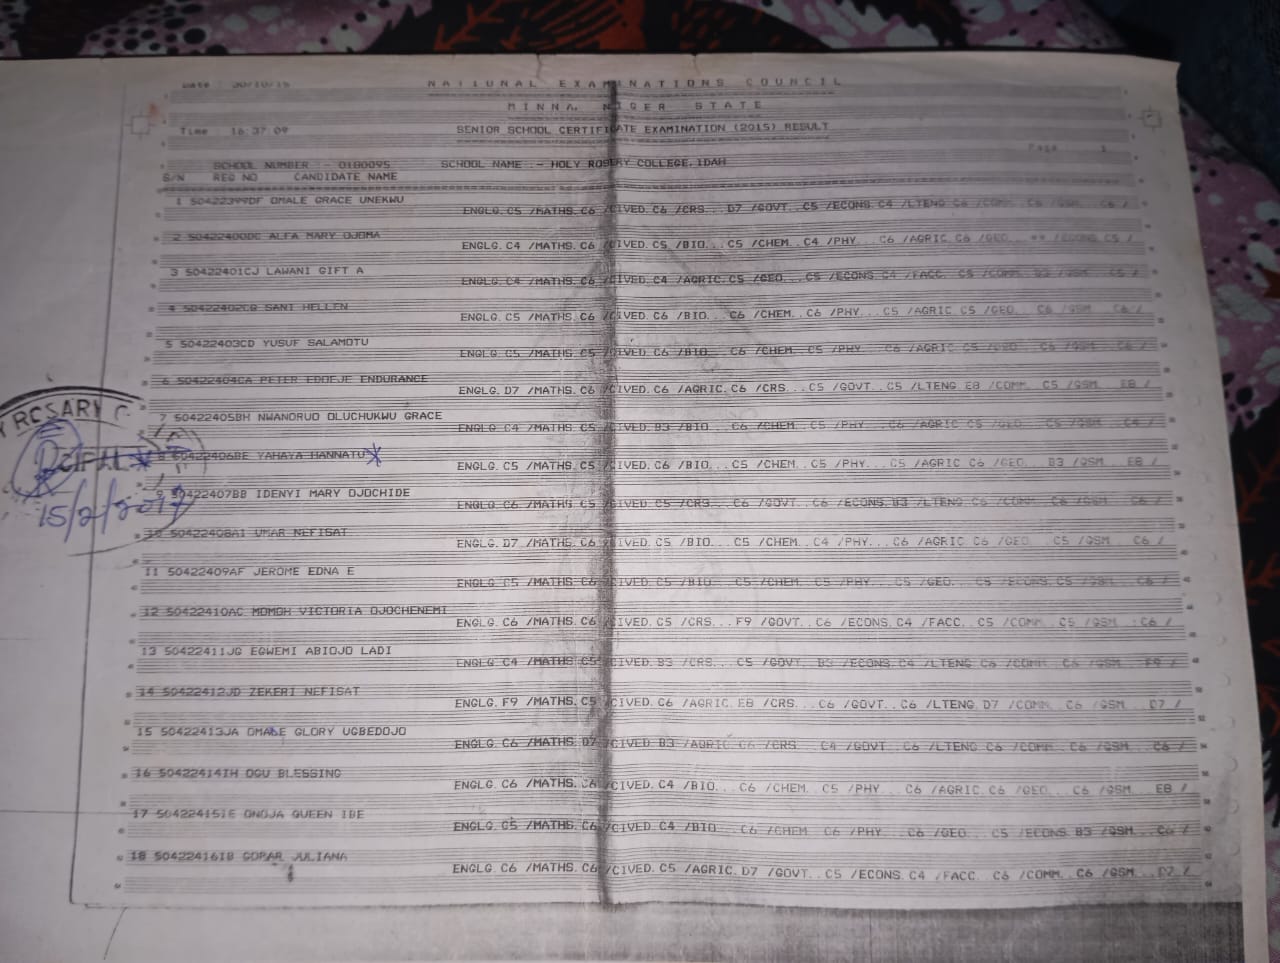 Date : 30/10/15
NATIONAL EXAMINATIONS COUNCIL
MINNA, NIGER STATE
Time : 16:37:09
SENIOR SCHOOL CERTIFICATE EXAMINATION (2015) RESULT
Page 1
SCHOOL NUMBER :- 0180095 SCHOOL NAME :- HOLY ROSERY COLLEGE, IDAH
S/N REG NO CANDIDATE NAME
1 50422399DF OMALE GRACE UNEKWU
ENGLG. C5 /MATHS. C6 /CIVED. C6 /CRS... D7 /GOVT.. C5 /ECONS. C4 /LTENG. C6 /COMM.. C6 /GSM... C6 /
2 50422400DC ALFA MARY OJOMA
ENGLG. C4 /MATHS. C6 /CIVED. C5 /BIO... C5 /CHEM.. C4 /PHY... C6 /AGRIC. C6 /GEO... ** /ECONS. C5 /
3 50422401CJ LAWANI GIFT A
ENGLG. C4 /MATHS. C6 /CIVED. C4 /AGRIC. C5 /GEO... C5 /ECONS. C4 /FACC.. C5 /COMM.. B3 /GSM... C6 /
4 50422402CG SANI HELLEN
ENGLG. C5 /MATHS. C6 /CIVED. C6 /BIO... C6 /CHEM.. C6 /PHY... C5 /AGRIC. C5 /GEO... C6 /GSM... C6 /
5 50422403CD YUSUF SALAMOTU
ENGLG. C5 /MATHS. C5 /CIVED. C6 /BIO... C6 /CHEM.. C5 /PHY... C6 /AGRIC. C5 /GSM... C6 /
6 50422404CA PETER EDOEJE ENDURANCE
ENGLG. D7 /MATHS. C6 /CIVED. C6 /AGRIC. C6 /CRS... C5 /GOVT.. C5 /LTENG. E8 /COMM.. C5 /GSM... E8 /
7 50422405BH NWANORUO OLUCHUKWU GRACE
ENGLG. C4 /MATHS. C6 /CIVED. B3 /BIO... C6 /CHEM.. C5 /PHY... C6 /AGRIC. C5 /GEO... C5 /GSM... C4 /
8 50422406BE YAHAYA HANNATU
ENGLG. C5 /MATHS. C5 /CIVED. C6 /BIO... C5 /CHEM.. C5 /PHY... C5 /AGRIC. C6 /GEO... B3 /GSM... E8 /
9 50422407BB IDENYI MARY OJOCHIDE
ENGLG. C6 /MATHS. C5 /CIVED. C5 /CRS... C6 /GOVT.. C6 /ECONS. B3 /LTENG. C6 /COMM.. C6 /GSM... C6 /
10 50422408AI UMAR NEFISAT
ENGLG. D7 /MATHS. C6 /CIVED. C5 /BIO... C5 /CHEM.. C4 /PHY... C6 /AGRIC. C6 /GEO... C5 /GSM... C6 /
11 50422409AF JEROME EDNA E
ENGLG. C5 /MATHS. C6 /CIVED. C5 /BIO... C5 /CHEM.. C5 /PHY... C5 /GEO... C5 /ECONS. C5 /GSM... C6 /
12 50422410AC MOMOH VICTORIA OJOCHENEMI
ENGLG. C6 /MATHS. C6 /CIVED. C5 /CRS... F9 /GOVT.. C6 /ECONS. C4 /FACC.. C5 /COMM.. C5 /GSM... C6 /
13 50422411JG EGWEMI ABIOJO LADI
ENGLG. C4 /MATHS. C5 /CIVED. B3 /CRS... C5 /GOVT.. B3 /ECONS. C4 /LTENG. C6 /COMM.. C6 /GSM... F9 /
14 50422412JD ZEKERI NEFISAT
ENGLG. F9 /MATHS. C5 /CIVED. C6 /AGRIC. E8 /CRS... C6 /GOVT.. C6 /LTENG. D7 /COMM.. C6 /GSM... D7 /
15 50422413JA OMALE GLORY UGBEDOJO
ENGLG. C6 /MATHS. D7 /CIVED. B3 /AGRIC. C6 /CRS... C4 /GOVT.. C6 /LTENG. C6 /COMM.. C6 /GSM... C6 /
16 50422414IH OGU BLESSING
ENGLG. C6 /MATHS. C6 /CIVED. C4 /BIO... C6 /CHEM.. C5 /PHY... C6 /AGRIC. C6 /GEO... C6 /GSM... E8 /
17 50422415IE ONOJA QUEEN IBE
ENGLG. C5 /MATHS. C6 /CIVED. C4 /BIO... C6 /CHEM.. C6 /PHY... C6 /GEO... C5 /ECONS. B3 /GSM... C6 /
18 50422416IB GOPAR JULIANA
ENGLG. C6 /MATHS. C6 /CIVED. C5 /AGRIC. D7 /GOVT.. C5 /ECONS. C4 /FACC.. C6 /COMM.. C6 /GSM... D7 /
Y ROSARY C
CIPAL
15/2/2017